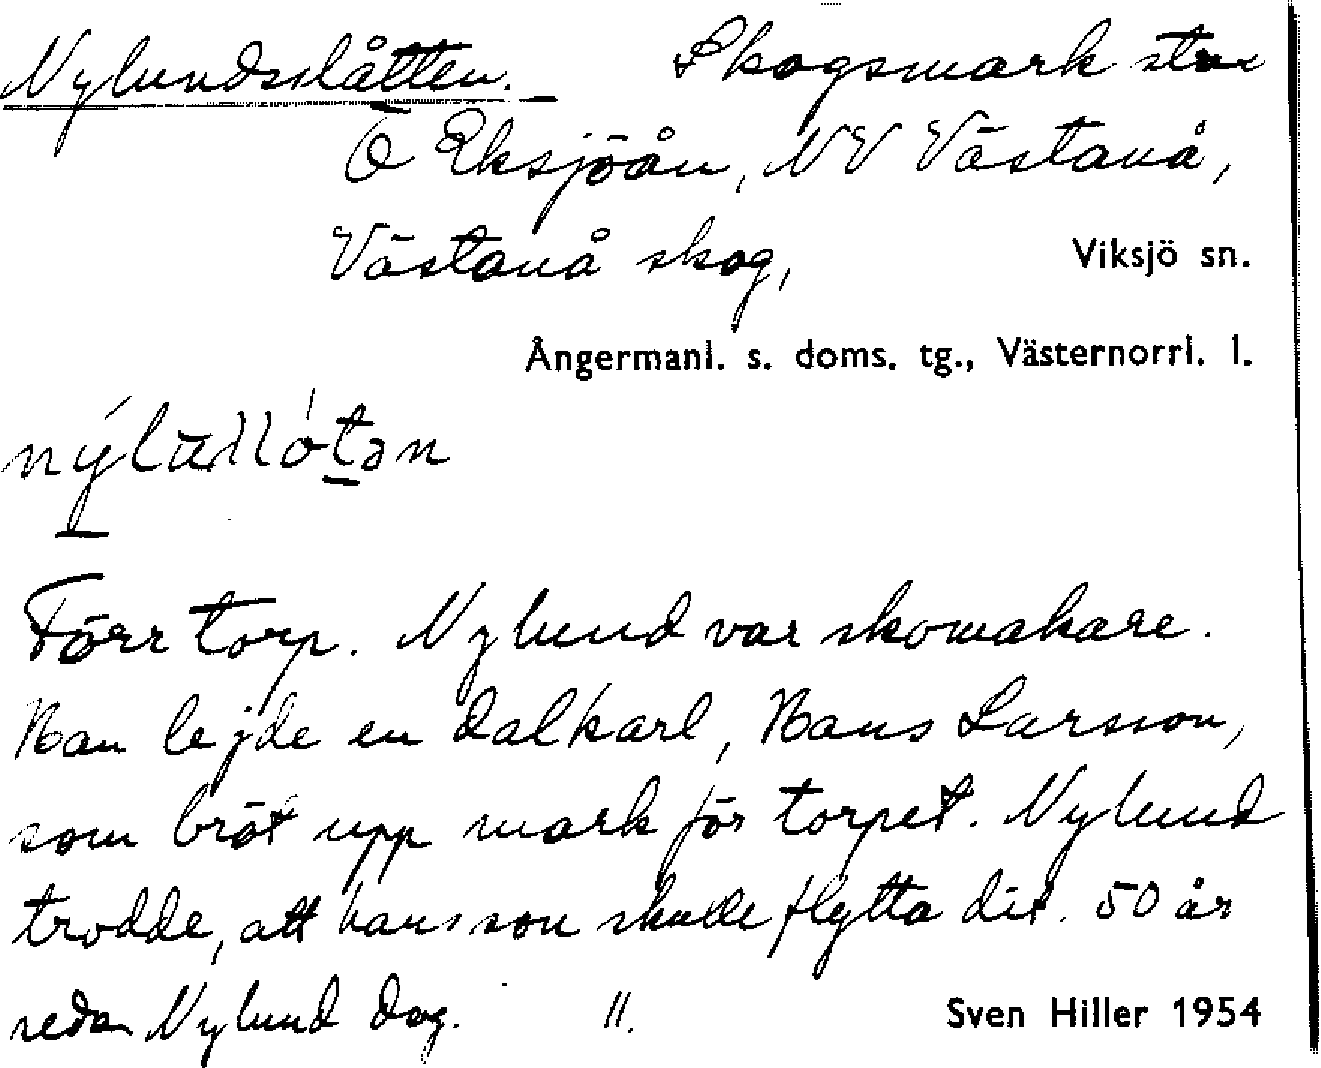 Nylundsslåtten. Skogsmark
Ö Eksjöån, NV Västanå,
Västanå skog, Viksjö sn.
Ångermanl. s. doms. tg., Västernorrl. l.
Förr torp. Nylund var skomakare.
Han lejde en dalkarl, Hans Larsson,
som bröt upp mark för torpet. Nylund
trodde, att hans son skulle flytta dit. 50 år
sedan Nylund dog. 11. Sven Hiller 1954